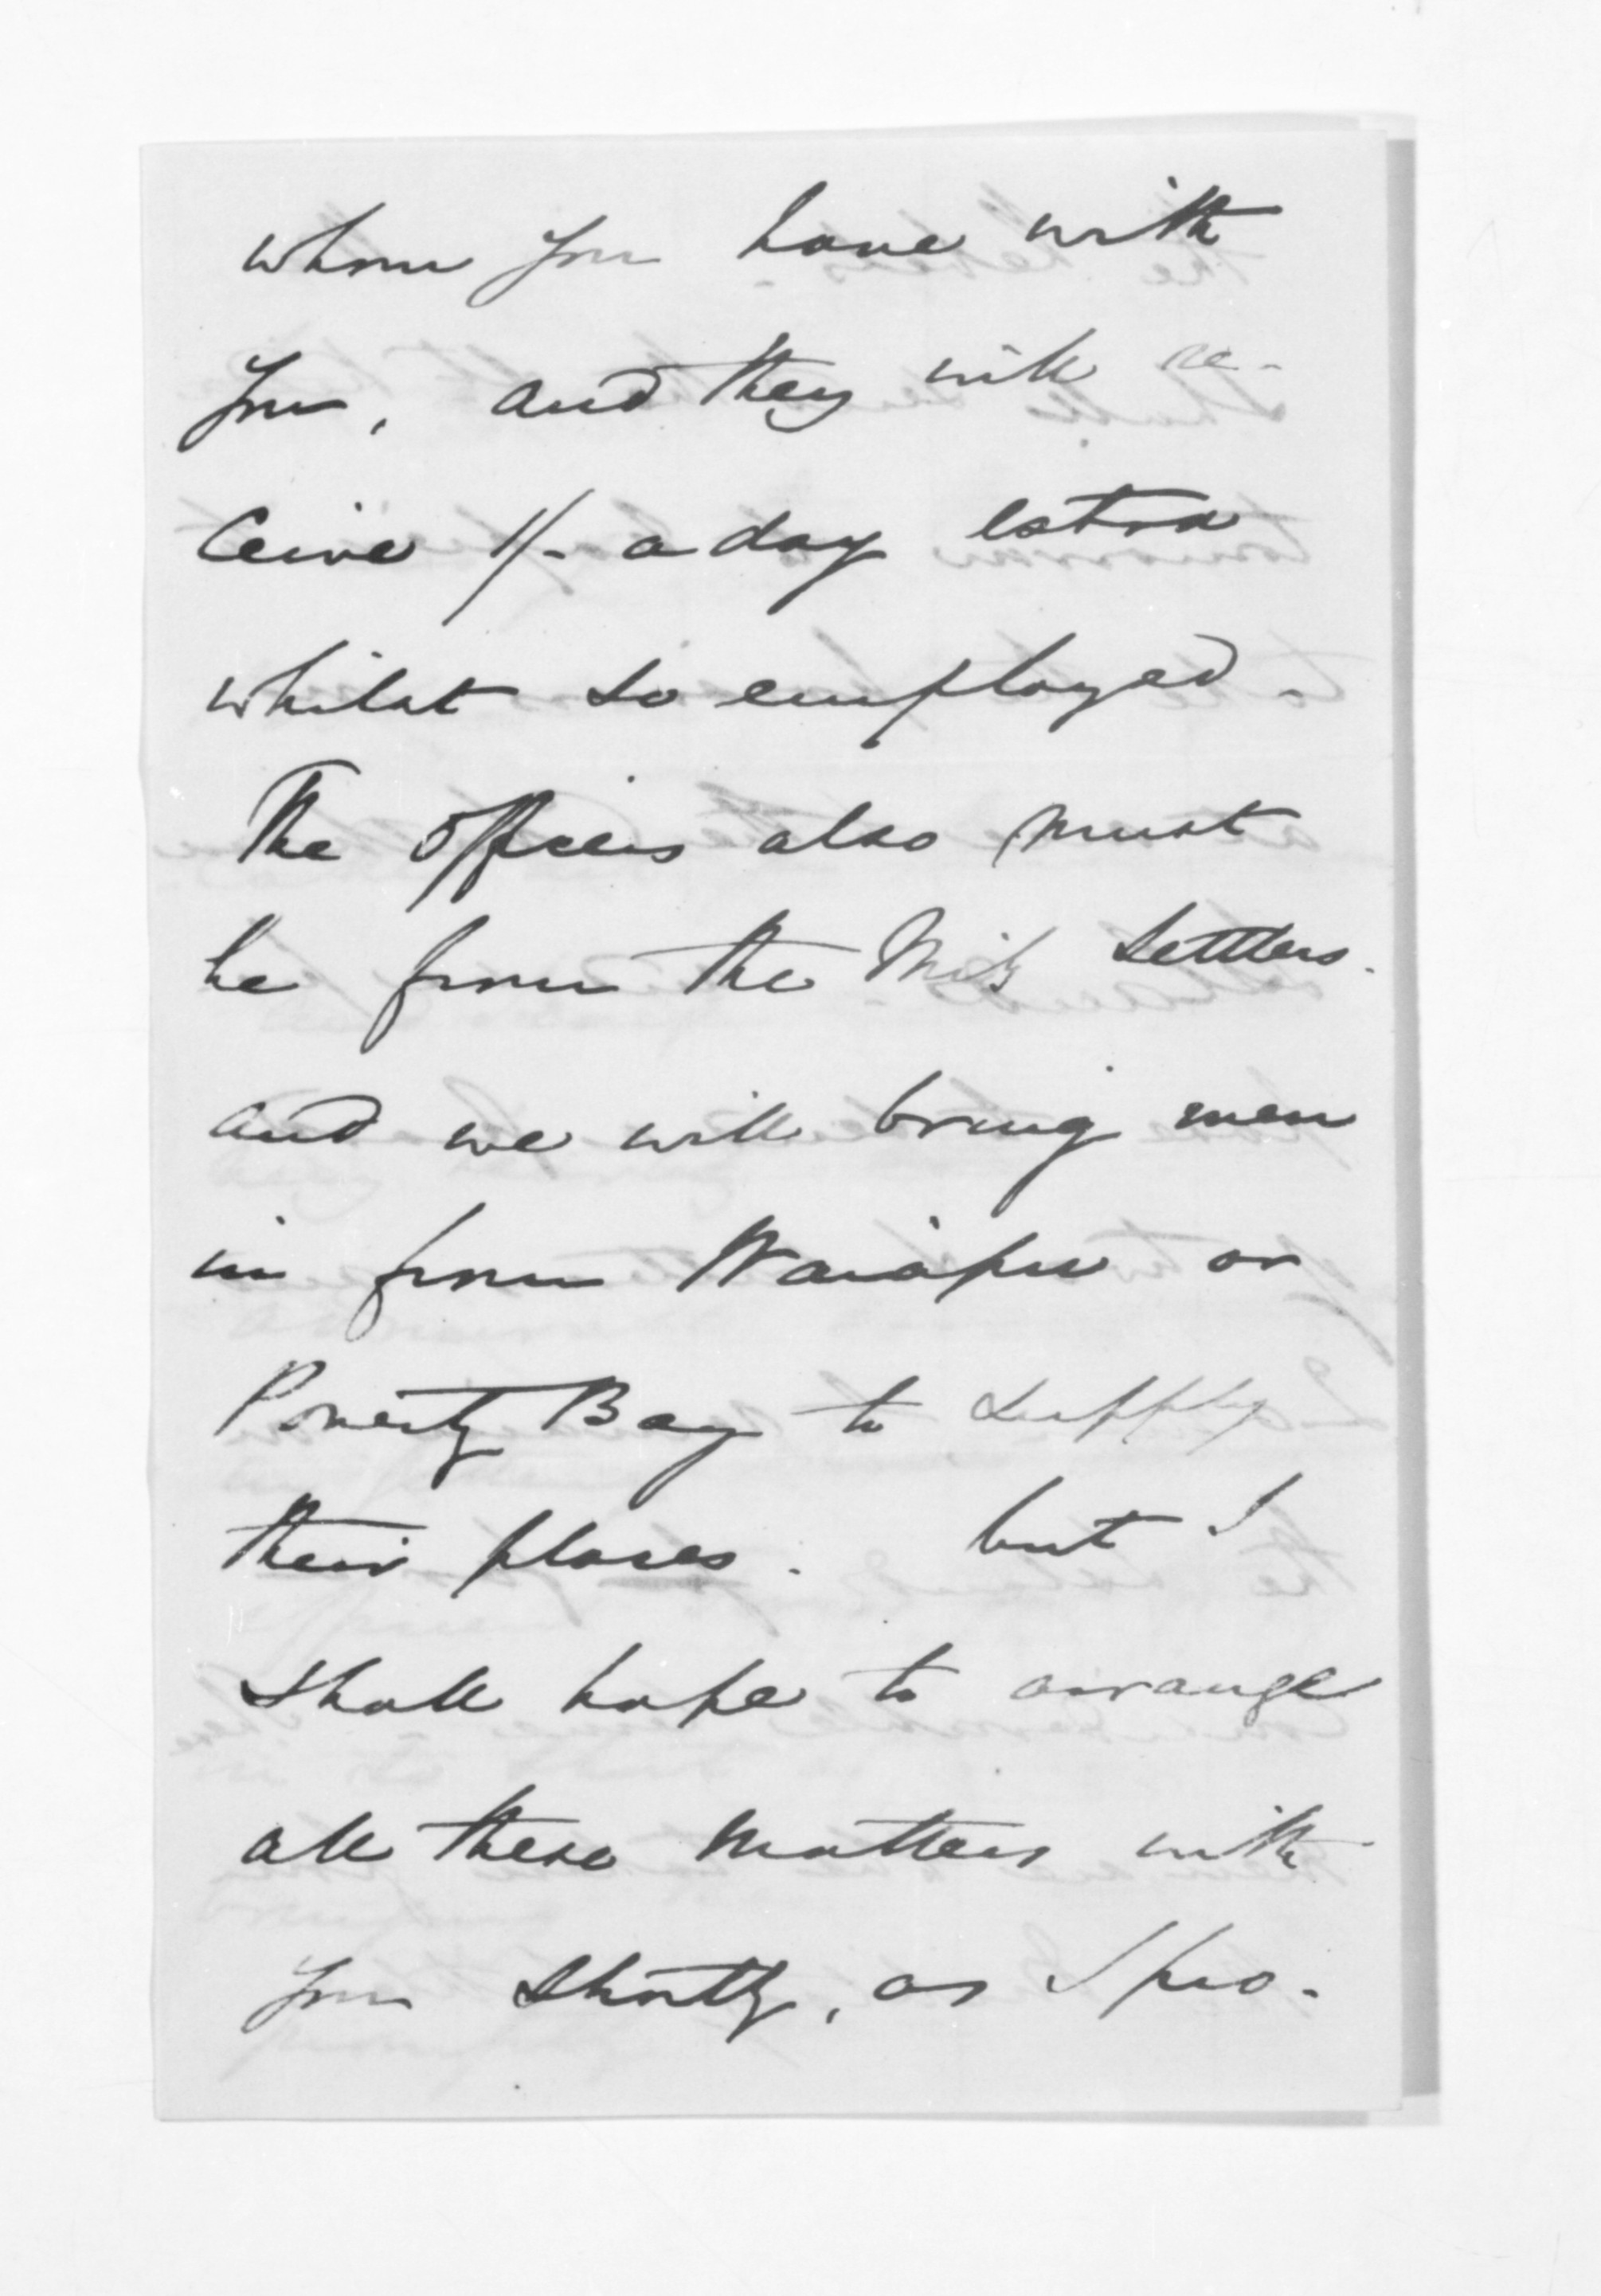 whom you have with
you, and they will re-
ceive 1/- a day extra
whilst so employed.
The Officers also must
be from the Mily Settlers.
and we will bring men
in from Waiapu or
Poverty Bay to supply
their places. but I
shall hope to arrange
all these matters with
you shortly, as I pro-